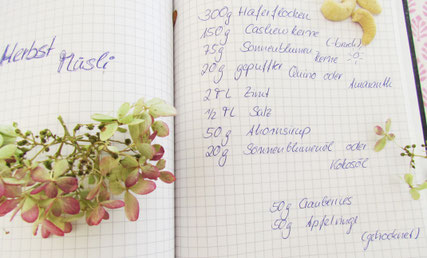 Herbst
Müsli
300g Haferflocken
150g Cashewkerne
(Bruch)
75g Sonnenblumen
kerne
20g gepuffter Quino oder Amaranth
2 TL Zimt
1/2 TL Salz
50g Ahornsirup
20g Sonnenblumenöl oder
Kokosöl
50g Cranberries
50g Apfelringe
(getrocknet)